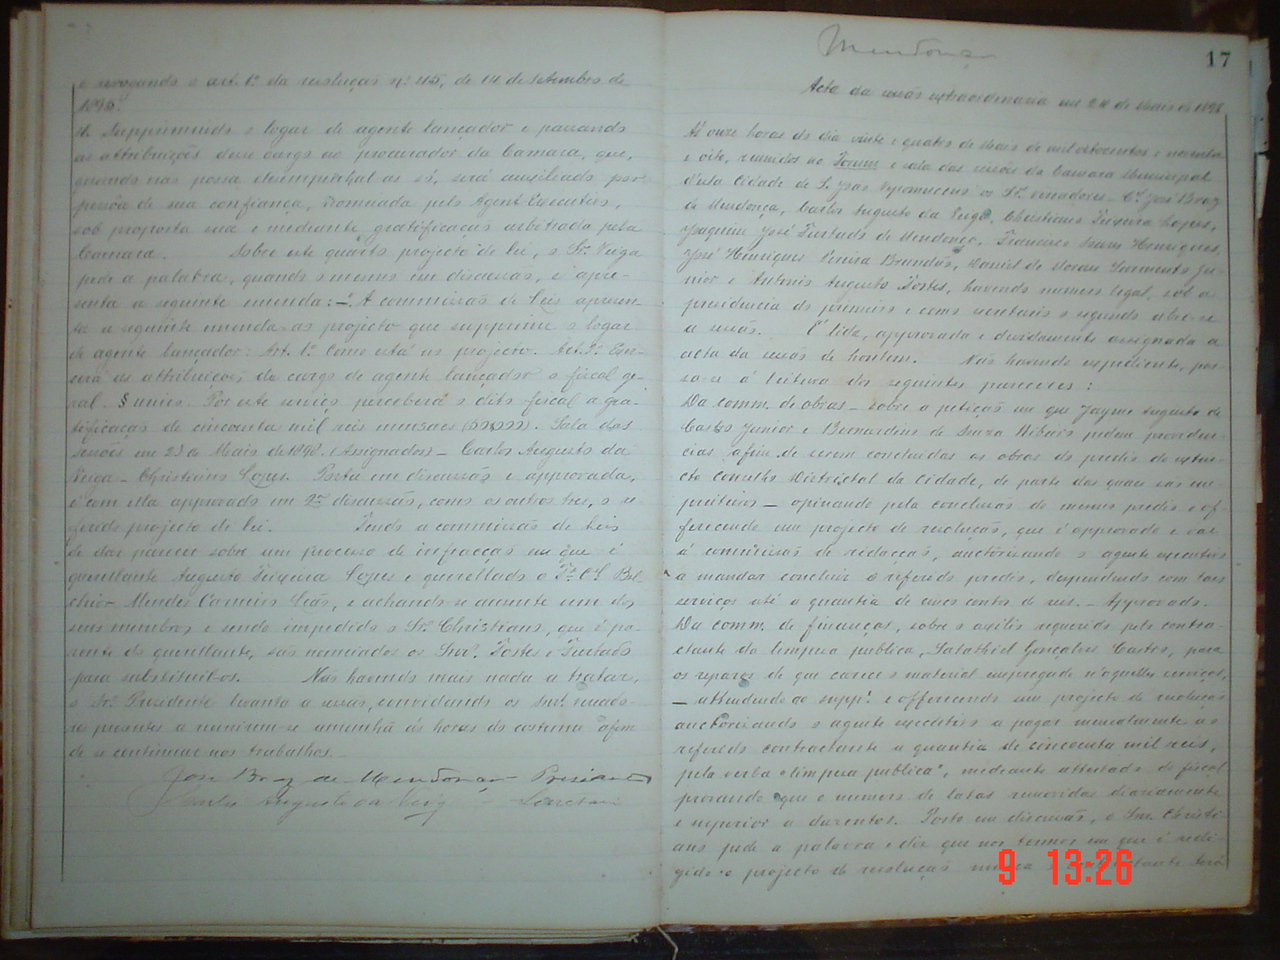 e revogando o art. 1º da resolução nº 45, de 14 de setembro de
1895.
Supprimindo o logar de agente lançador e passando
as attribuições desse cargo ao procurador da Camara, que,
quando não possa desempenhal as só, será auxiliado por
pessôa de sua confiança, nomeada pelo Agente Executivo,
sob proposta sua e mediante gratificação arbitrada pela
Camara. Sobre este quarto projecto de lei, o Sr. Veiga
pede a palavra, quando o mesmo em discussão, e apre-
senta a seguinte emenda: – "A commissão de Leis apresen-
ta a seguinte emenda ao projecto que supprime o logar
de agente lançador: Art. 1º Como está no projecto. Art. 2º Exer-
cerá as attribuições do cargo de agente lançador o fiscal ge-
ral. § unico. Por este serviço perceberá o dito fiscal a gra-
tificação de cincoenta mil reis mensaes. Sala das
sessões em 23 de Maio de 1898. (Assignados) – Carlos Augusto da
Veiga – Christiano Lopes. Posta em discussão e approvada,
é com ella approvado em 2ª discussão, como os outros tres, o re-
ferido projecto de lei. Tendo a commissão de leis
de dar parecer sobre um processo de infracção em que é
querellante Augusto Teixeira Lopes e querellado o Te. Cel. Bel-
chior Mendes Carneiro Leão, e achando-se ausente um dos
seus membros e sendo impedido o Sr. Christiano, que é pa-
rente do querellante, são nomeados os Snrs. Fortes e Furtado
para substituil-os. Não havendo mais nada a tratar,
o Sr. Presidente levanta a sessão, convidando os Snrs. vereado-
res presentes a reunirem-se amanhã ás horas do costume afim
de se continuar nos trabalhos.
José Braz de Mendonça Presidente
Carlos Augusto da Veiga – Secretario
Mendonça
17
Acta da sessão extraordinaria em 24 de Maio de 1898
Ás onze horas do dia vinte e quatro de Maio de mil oitocentos e noventa
e oito, reunidos no Forum e sala das sessões da Camara Municipal
d'esta Cidade de S. João Nepomuceno os Srs. vereadores – Cel. José Braz
de Mendonça, Carlos Augusto da Veiga, Christiano Teixeira Lopes,
Joaquim José Furtado de Mendonça, Francisco Henriques,
José Henriques Pereira Brandão, Daniel de Moraes Sarmento Ju-
nior e Antonio Augusto Fortes, havendo numero legal, sob a
presidencia do primeiro e como secretario o segundo abre-se
a sessão. É lida, approvada e devidamente assignada a
acta da sessão de hontem. Não havendo expediente, pas-
sa-se á leitura dos seguintes pareceres:
Da comm. de obras – sobre a petição em que Jayme Augusto de
Castro Junior e Bernardino de Souza Ribeiro pedem providen-
cias afim de serem concluidas as obras do predio do extin-
cto conselho Districtal da Cidade, de parte das quaes são em-
preiteiros – opinando pela conclusão do mesmo predio e of-
ferecendo um projecto de resolução, que é approvado e vae
á commissão de redacção, auctorisando o agente executivo
a mandar concluir o referido predio, despendendo com taes
serviços até a quantia de cinco contos de reis. – Approvado.
Da comm. de finanças, sobre o auxilio requerido pelo contra-
ctante da limpeza publica, Salathiel Gonçalves Castro, para
os reparos de que carece o material empregado n'aquelles serviços,
– attendendo ao suppe. e offerecendo um projecto de resolução
auctorisando o agente executivo a pagar mensalmente ao
referido contractante a quantia de cincoenta mil reis,
pela verba "limpeza publica", mediante attestado do fiscal
provando que o numero de latas removidas diariamente
é superior a duzentos. Posto em discussão, o Snr. Christi-
ano pede a palavra e diz que nos termos em que é redi-
gido o projecto de resolução nunca contractante terá
9 13:26